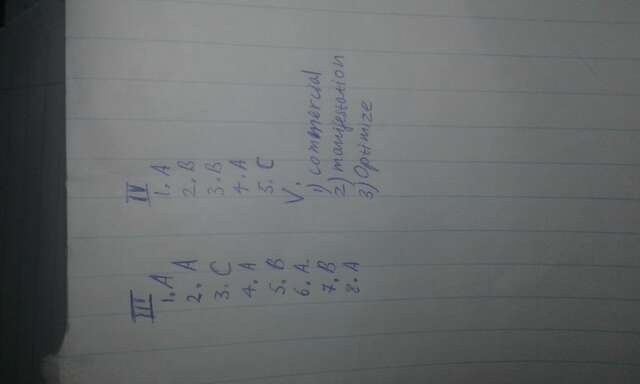 III
1. A
2. A
3. C
4. A
5. B
6. A.
7. B
8. A
IV
1. A
2. B
3. B
4. A
5. C
V.
1) commercial
2) manifestation
3) Optimize